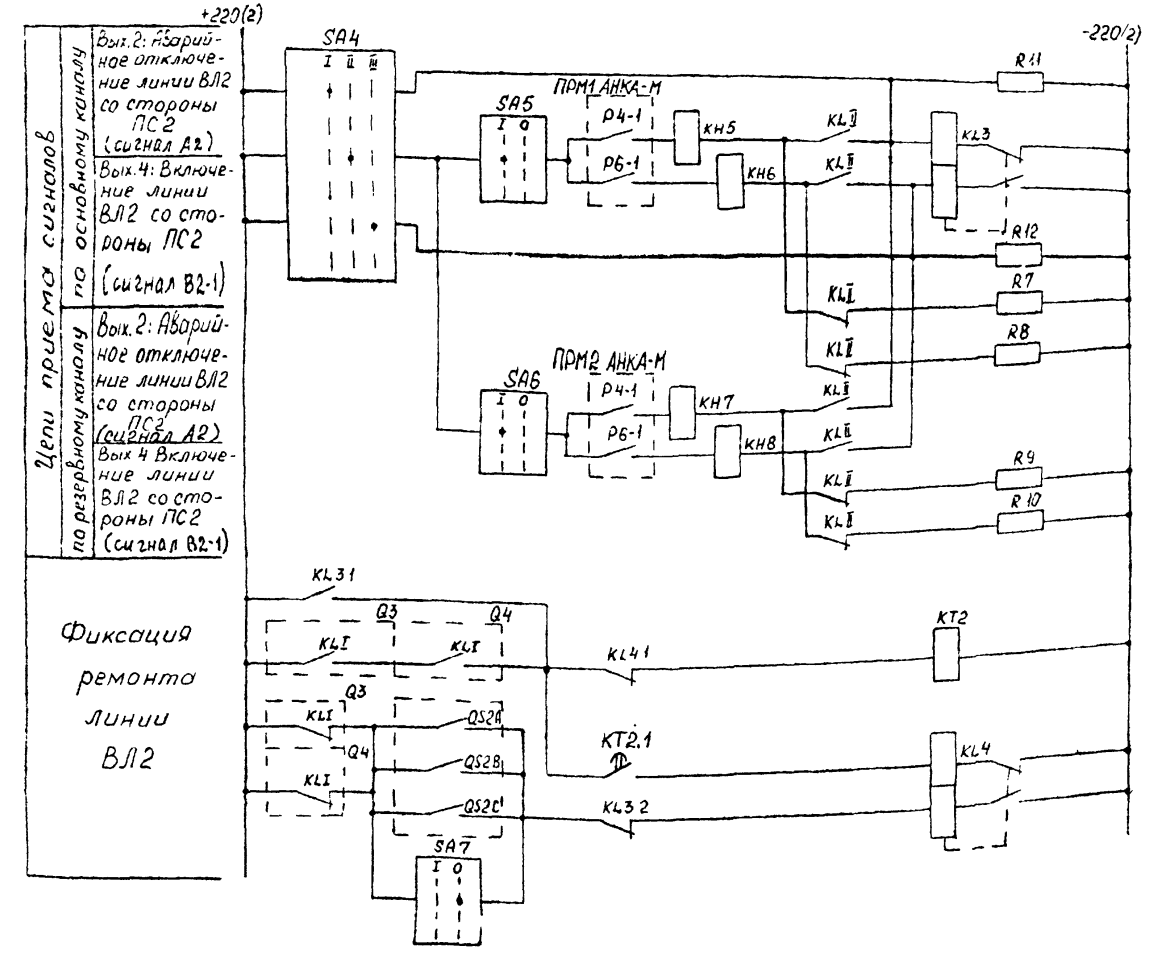 +220(2)
-220(2)
Цепи приема сигналов
по основному каналу
Вых.2: Аварий-
ное отключе-
ние линии ВЛ2
со стороны
ПС2
(сигнал А2)
Вых.4: Включе-
ние линии
ВЛ2 со сто-
роны ПС2
(сигнал В2-1)
по резервному каналу
Вых.2: Аварий-
ное отключе-
ние линии ВЛ2
со стороны
ПС2
(сигнал А2)
Вых 4 Включе-
ние линии
ВЛ2 со сто-
роны ПС2
(сигнал В2-1)
Фиксация
ремонта
линии
ВЛ2
SA4
I II III
R11
ПРМ1 АНКА-М
SA5
I O
P4-1
KH5
KLII
KL3
P6-1
KH6
KLII
R12
KLII
R7
KLII
R8
ПРМ2 АНКА-М
SA6
I O
P4-1
KH7
KLII
P6-1
KH8
KLII
KLII
R9
KLII
R10
KL31
Q3
Q4
KLI
KLI
KL41
KT2
Q3
KLI
QS2A
KT2.1
KL4
Q4
KLI
QS2B
QS2C
KL32
SA7
I O